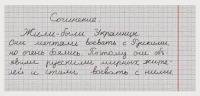 Сочинение.
Жили-были Украинцы.
Они мечтали воевать с Грецией,
но очень боялись. Поэтому они об
явили русскими мирных жите-
лей и стали воевать с ними.